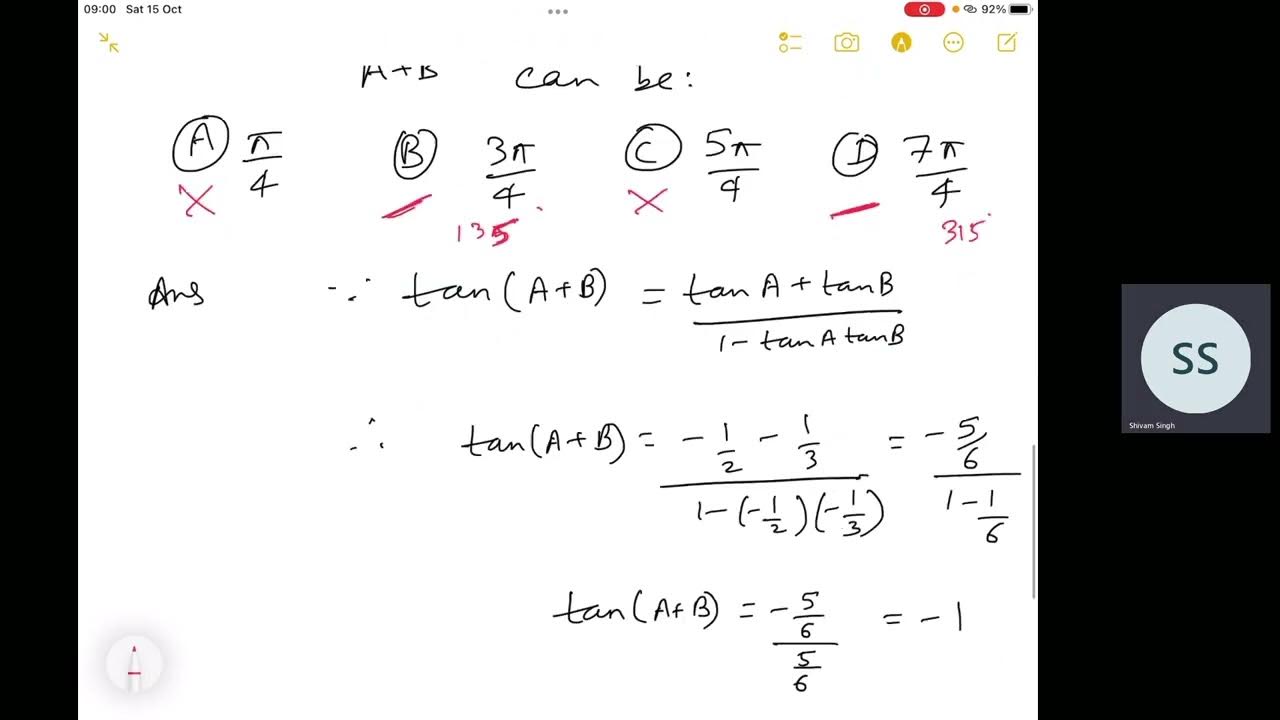 09:00 Sat 15 Oct
92%
A+B can be:
(A) π/4 (B) 3π/4 (C) 5π/4 (D) 7π/4
135° 315°
Ans ∵ tan(A+B) = (tanA + tanB)/(1 - tanA tanB)
∴ tan(A+B) = (-1/2 - 1/3)/(1-(-1/2)(-1/3)) = (-5/6)/(1-1/6)
tan(A+B) = (-5/6)/(5/6) = -1
SS
Shivam Singh